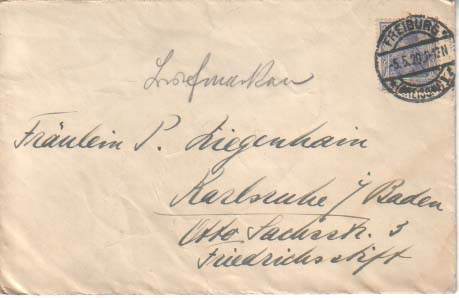 FREIBURG
-5.5.20.
(BREISGAU)
Briefmarken
Fräulein P. Ziegenhain
Karlsruhe i/Baden
Otto Sachsstr. 3
Friedrichsstift